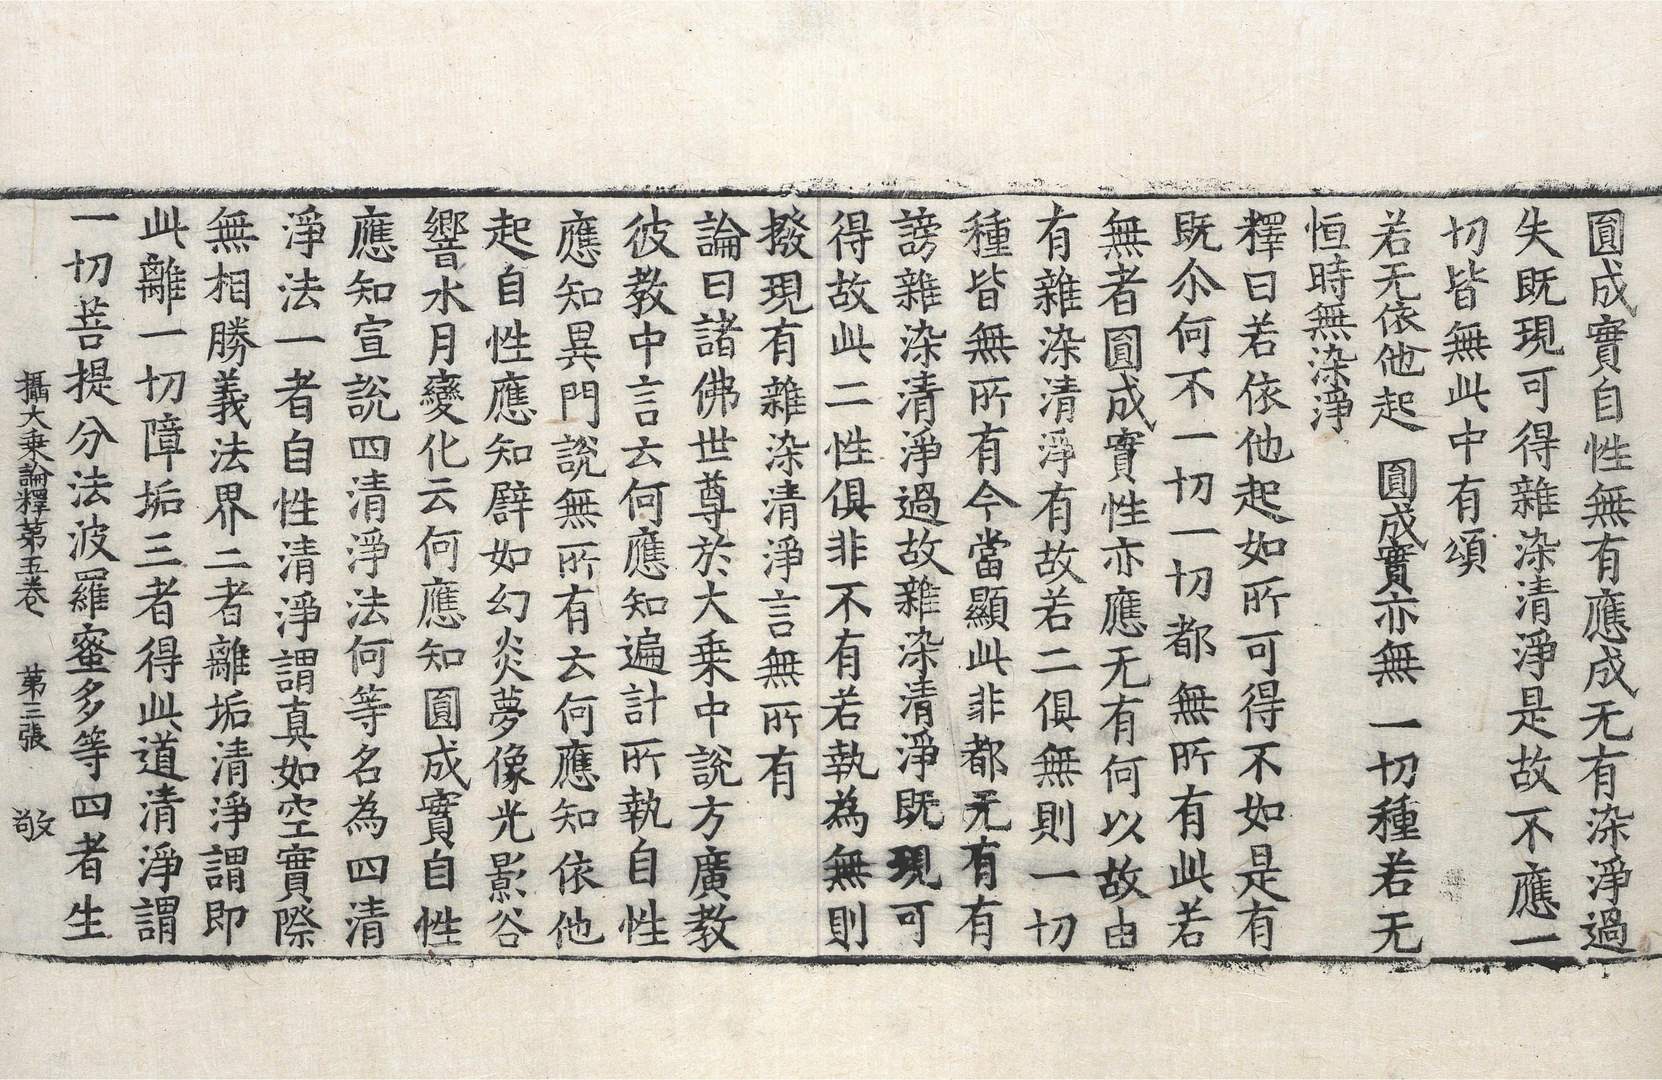 圓成實自性無有應成无有染淨過
失既現可得雜染清淨是故不應一
切皆無此中有頌
若无依他起　圓成實亦無　一切種若无
恒時無染淨
釋曰若依他起如所可得不如是有
既尒何不一切一切都無所有此若
無者圓成實性亦應无有何以故由
有雜染清淨有故若二俱無則一切
種皆無所有今當顯此非都无有有
謗雜染清淨過故雜染清淨既現可
得故此二性俱非不有若執為無則
撥現有雜染清淨言無所有
論曰諸佛世尊於大乘中說方廣教
彼教中言云何應知遍計所執自性
應知異門說無所有云何應知依他
起自性應知譬如幻炎夢像光影谷
響水月變化云何應知圓成實自性
應知宣說四清淨法何等名為四清
淨法一者自性清淨謂真如空實際
無相勝義法界二者離垢清淨謂即
此離一切障垢三者得此道清淨謂
一切菩提分法波羅蜜多等四者生
攝大乘論釋第五卷　第三張　敬